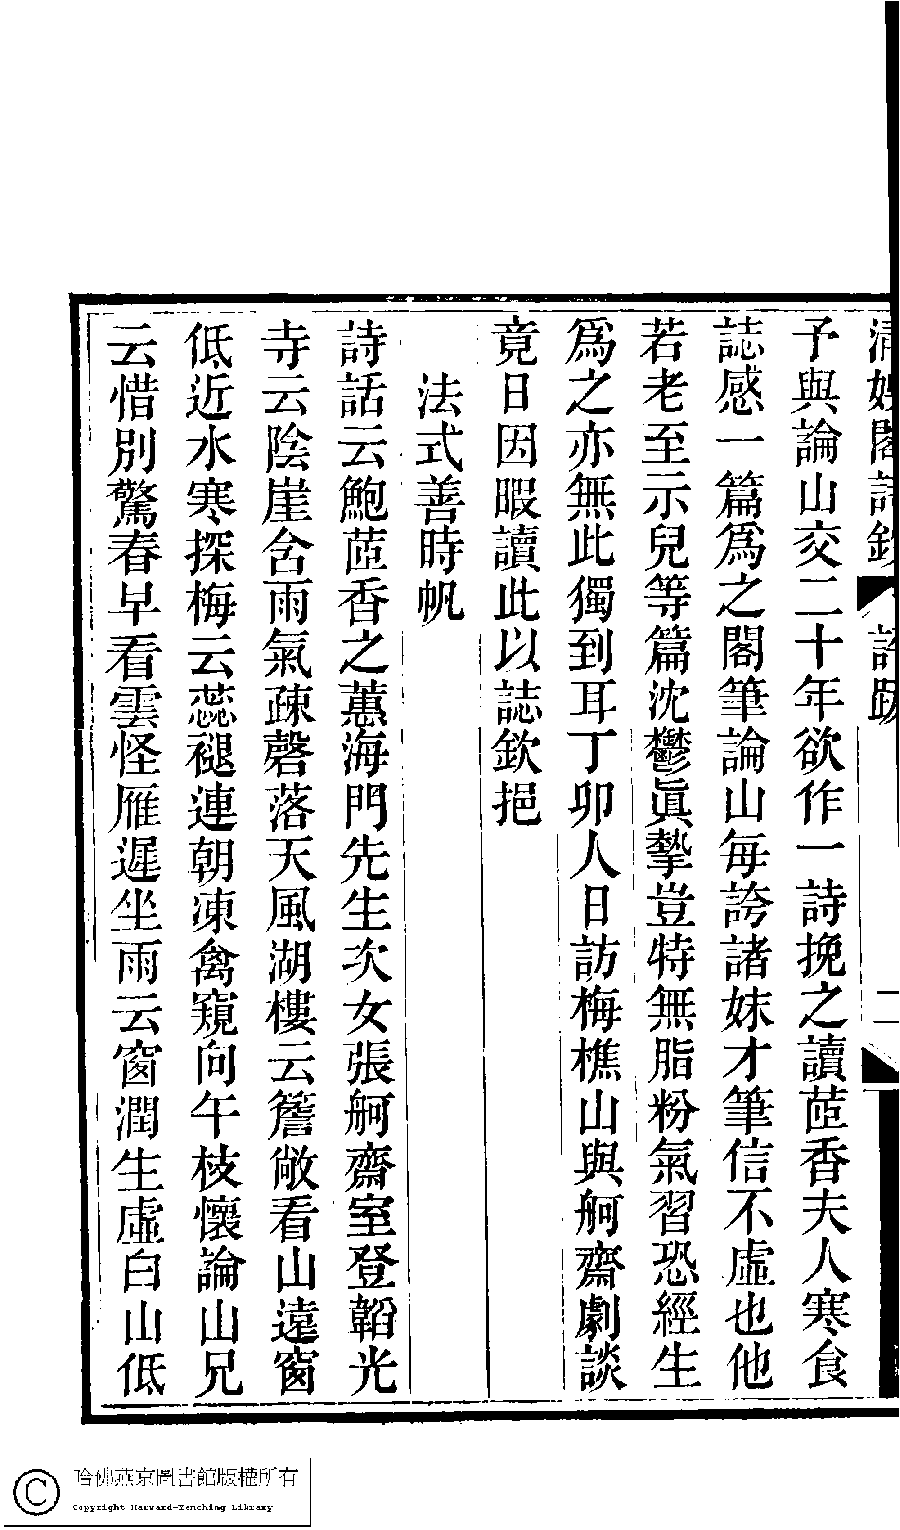 清娛閣詩鈔 詩跋 二
予與論山交二十年欲作一詩挽之讀茝香夫人寒食
誌感一篇爲之閣筆論山每誇諸妹才筆信不虛也他
若老至示兒等篇沈鬱眞摯豈特無脂粉氣習恐經生
爲之亦無此獨到耳丁卯人日訪梅樵山與舸齋劇談
竟日因暇讀此以誌欽挹
法式善時帆
詩話云鮑茝香之蕙海門先生次女張舸齋室登韜光
寺云陰崖含雨氣疎磬落天風湖樓云簷敞看山遠窗
低近水寒探梅云蕊褪連朝凍禽窺向午枝懷論山兄
云惜別驚春早看雲怪雁遲坐雨云窗潤生虛白山低
哈佛燕京圖書館版權所有
Copyright Harvard-Yenching Library